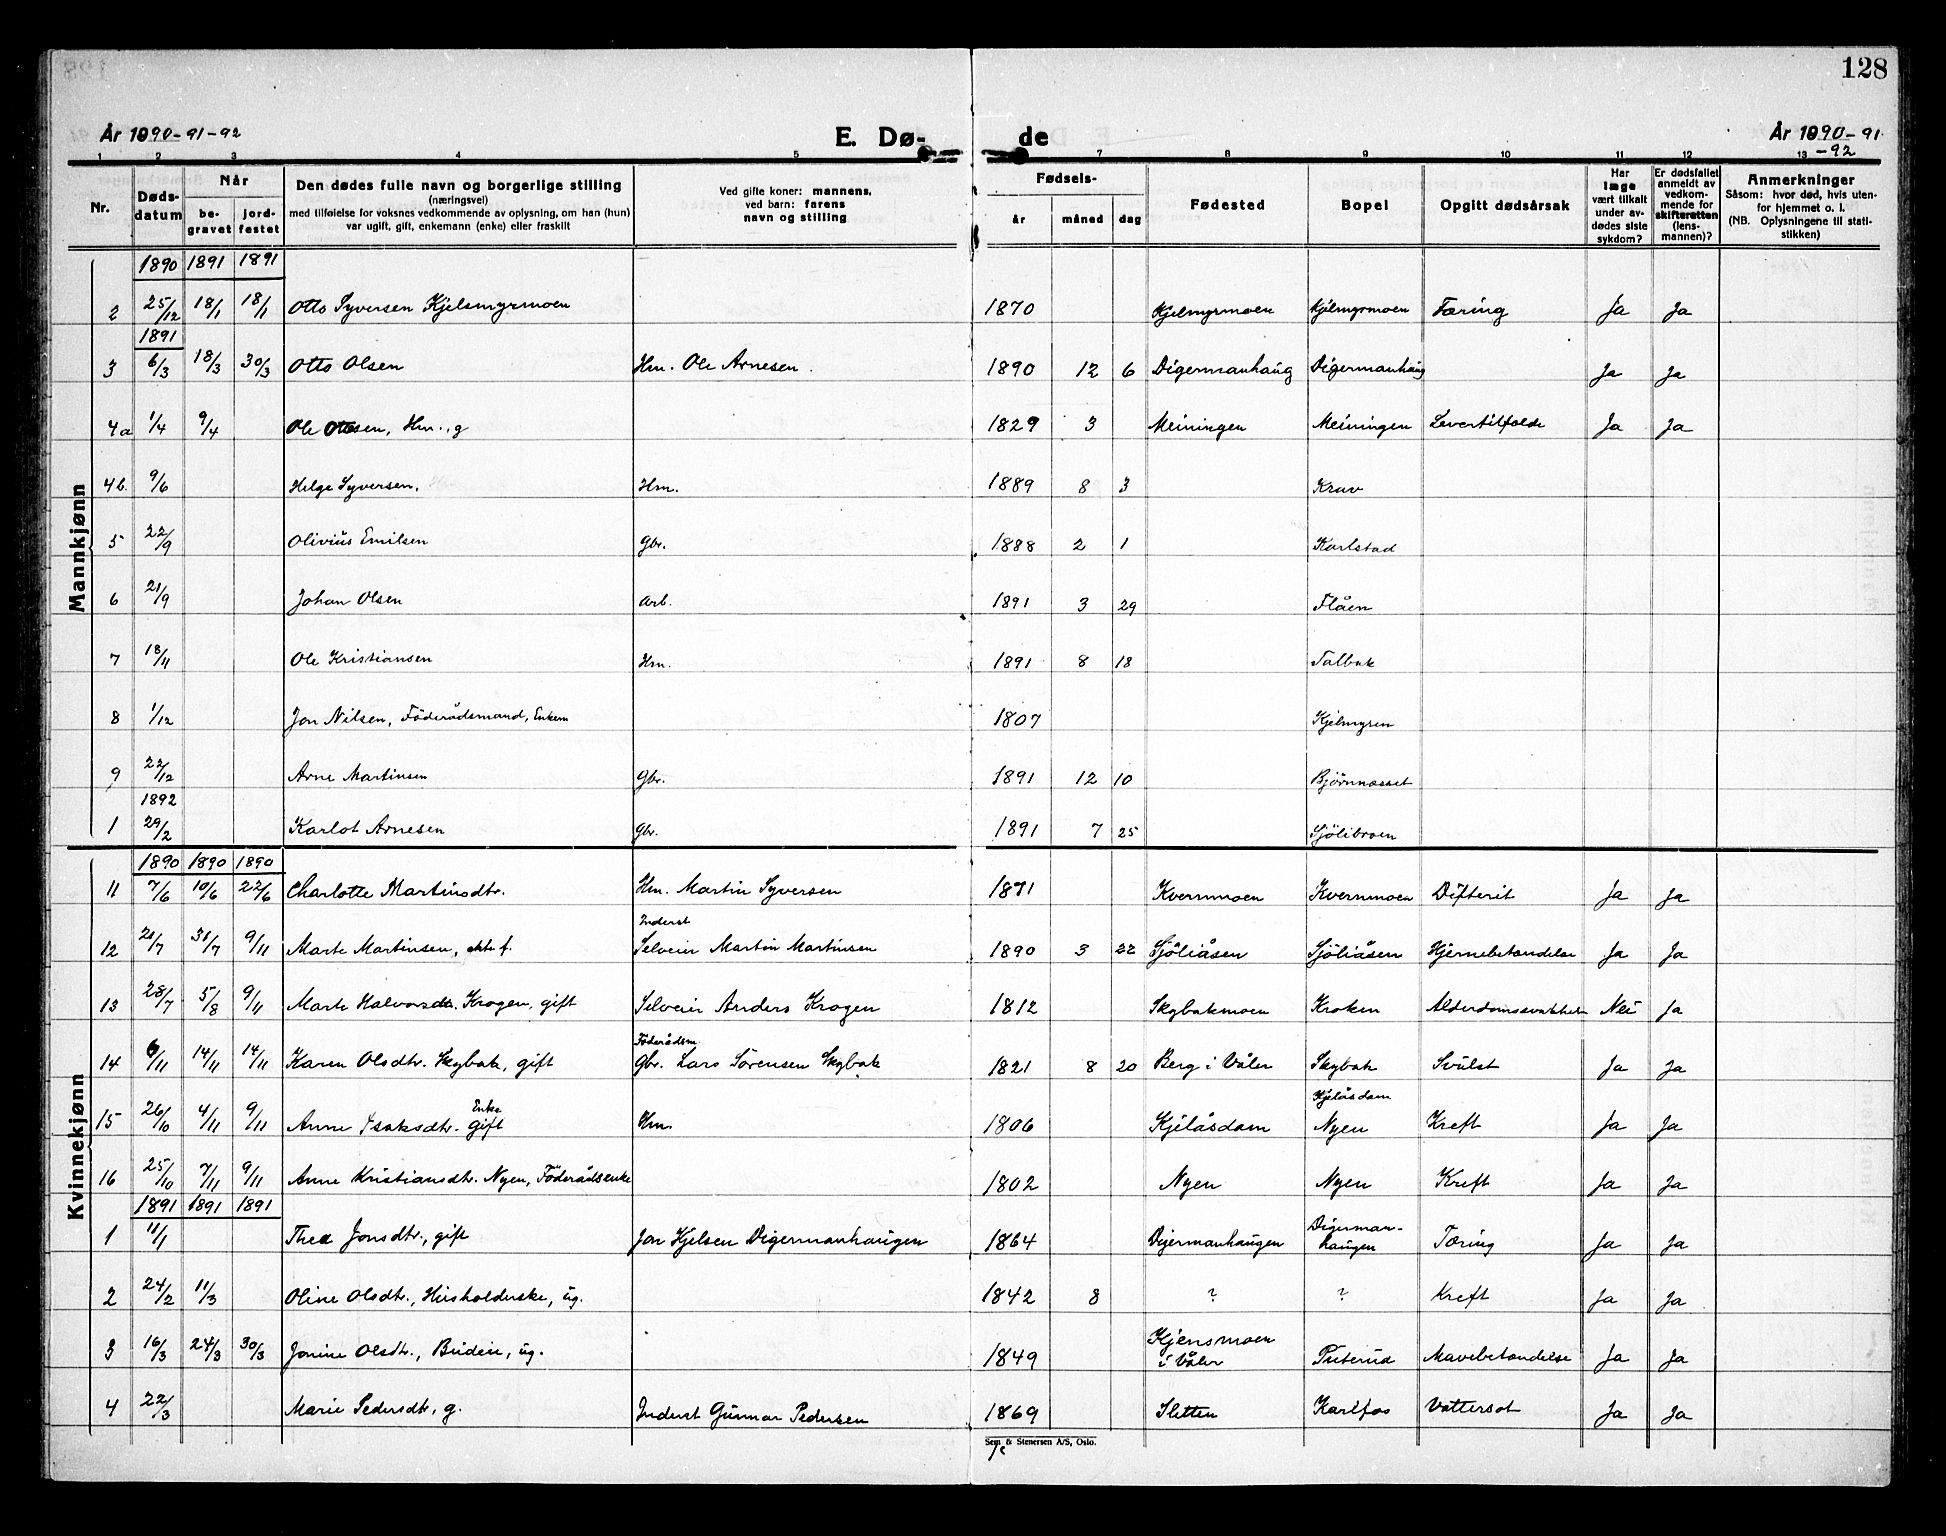 128
År 1890-91-92 E. Dø- de År 1890-91
-92
1 2 3 4 5 7 8 9 10 11 12 13
Nr. Døds-datum Når be-gravet jord-festet Den dødes fulle navn og borgerlige stilling (næringsvei) med tilføielse for voksnes vedkommende av oplysning, om han (hun) var ugift, gift, enkemann (enke) eller fraskilt Ved gifte koner: mannens, ved barn: farens navn og stilling Fødsels- år måned dag Fødested Bopel Opgitt dødsårsak Har læge vært tilkalt under av-dødes siste sykdom? Er dødsfallet anmeldt av vedkom-mende for skifteretten (lens-mannen)? Anmerkninger Såsom: hvor død, hvis uten-for hjemmet o. l. (NB. Oplysningene til stati-stikken)
Mannkjønn
1890 1891 1891
2 25/12 18/1 18/1 Otto Syversen Kjelsmyrmoen 1870 Kjelmyrmoen Kjelmyrmoen Tæring Ja Ja
1891
3 6/3 18/3 30/3 Otto Olsen Hm. Ole Arnesen 1890 12 6 Digermanhaug Digermanhaug Ja Ja
4a 1/4 9/4 Ole Ottosen, Hm., g 1829 3 Meiningen Meiningen Levertilfælde Ja Ja
4b. 9/6 Helge Syversen, Hm. 1889 8 3 Krav
5 22/9 Olivius Emilsen Gbr. 1888 2 1 Karlstad
6 21/9 Johan Olsen Arb. 1891 3 29 Flåen
7 18/11 Ole Kristiansen Hm. 1891 8 18 Talbak
8 1/12 Jon Nilsen, Föderådsmand, Enkem 1807 Kjelmyren
9 22/12 Arne Martinsen Gbr. 1891 12 10 Björnnæsset
1892
1 29/2 Karlot Arnesen Gbr. 1891 7 25 Sjölibroen
Kvinnekjønn
1890 1890 1890
11 7/6 10/6 22/6 Charlotte Martinsdtr. Hm. Martin Syversen 1871 Kvernmoen Kvernmoen Difterit Ja Ja
Inderst
12 21/7 31/7 9/11 Marte Martinsen, ekte f. Selveier Martin Martinsen 1890 3 22 Sjöliåsen Sjöliåsen Hjernebetændelse Ja Ja
13 28/7 5/8 9/11 Marte Halvorsdtr. Krogen, gift Selveier Anders Krogen 1812 Skybakmoen Kroken Alderdomssvakhet Nei Ja
Föderådsm.
14 6/11 14/11 14/11 Karen Olsdtr. Skybak, gift Gbr. Lars Sörensen Skybak 1821 8 20 Berg i Våler Skybak Svulst Ja Ja
Enke Kjelåsdam
15 26/10 4/11 9/11 Anne Isaksdtr. gift Hm. 1806 Kjelåsdam Nyen Kreft Ja Ja
16 25/10 7/11 9/11 Anne Kristiansdtr. Nyen, Föderådsenke 1802 Nyen Nyen Kreft Ja Ja
1891 1891 1891
1 11/1 Thea Jonsdtr., gift Jon Kjelsen Digermanhaugen 1864 Digermanhaugen Digerman-haugen Tæring Ja Ja
2 24/2 11/3 Oline Olsdtr., Husholderske, ug. 1842 8 ? ? Kreft Ja Ja
3 16/3 24/3 30/3 Jonine Olsdtr., Budeie, ug. 1849 Kjensmoen i Våler Puterud Mavebetændelse Ja Ja
4 22/3 Marie Pedersdtr., g. Inderst Gunnar Pedersen 1869 Sletten Karlfos Vattersot Ja Ja
Sem & Stenersen A/S, Oslo.